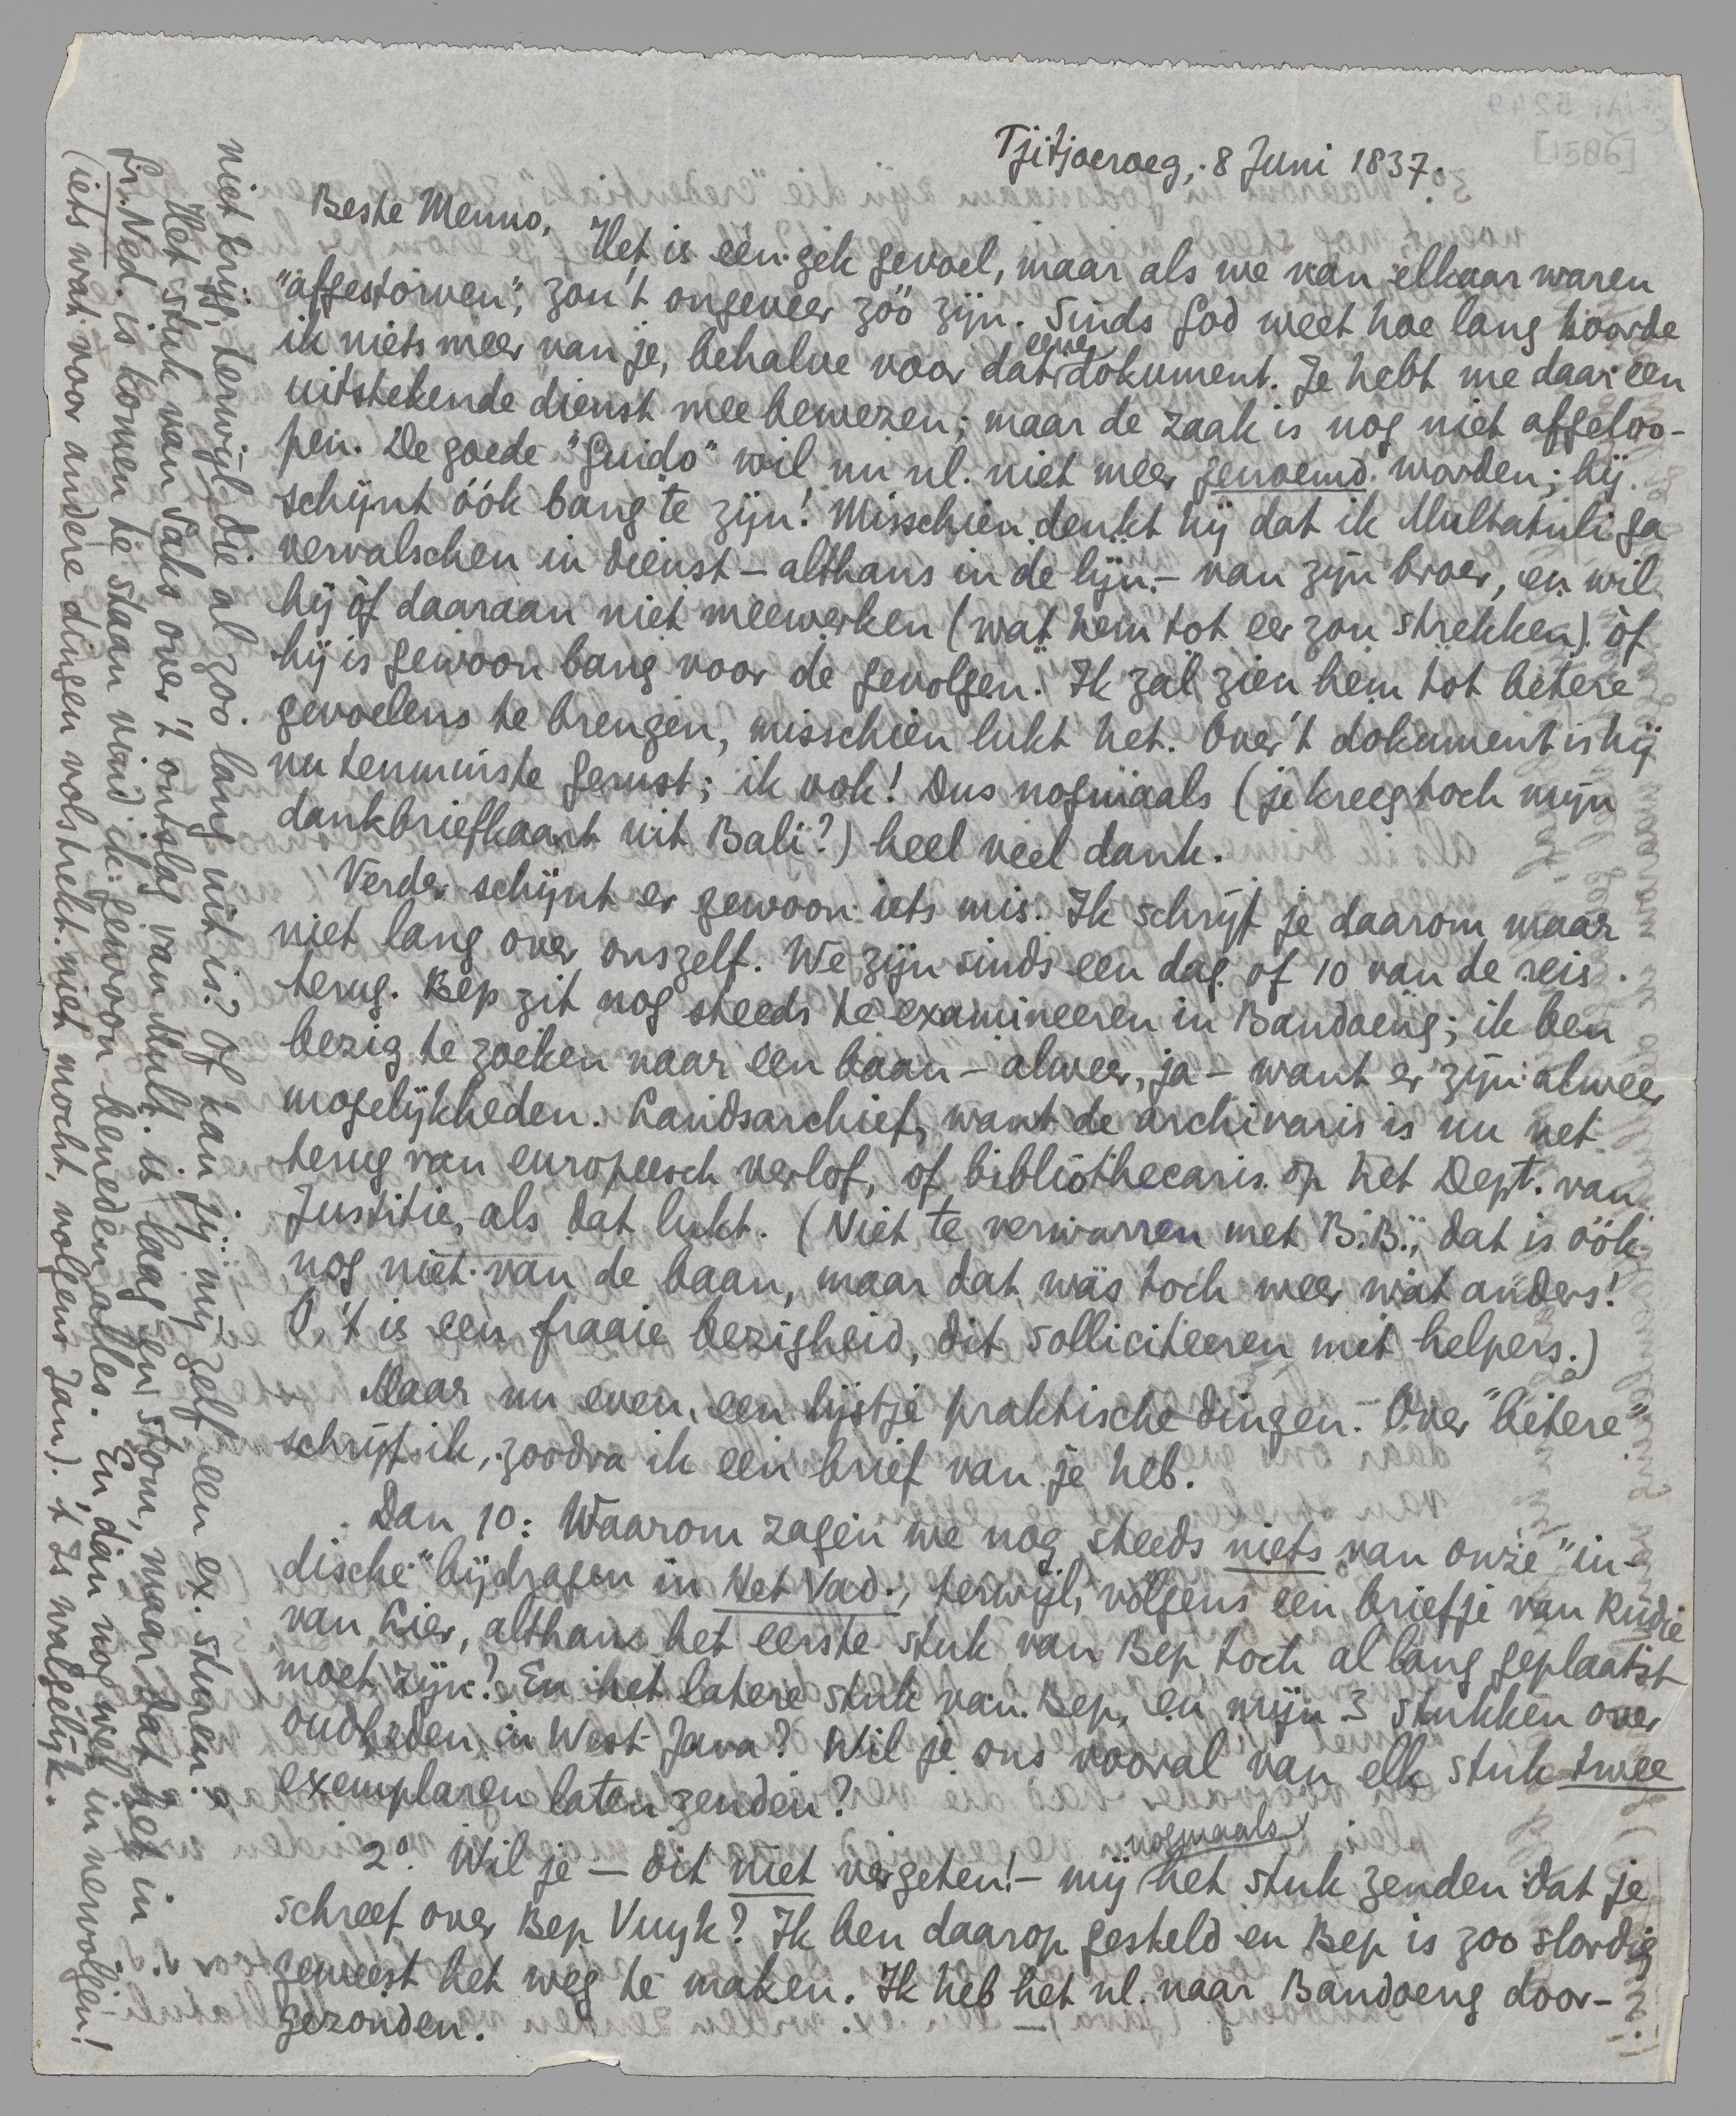 Tjitjoeroeg, 8 Juni 1837.
Beste Menno,
Het is een gek gevoel, maar als we van elkaar waren
"afgestorven", zou 't ongeveer zóó zijn. Sinds God weet hoe lang hoorde
ik niets meer van je, behalve voor dat eene dokument. Je hebt me daar een
uitstekende dienst mee bewezen; maar de zaak is nog niet afgeloo-
pen. De goede "Guido" wil nu nl. niet meer genoemd worden; hij
schijnt óók bang te zijn! Misschien denkt hij dat ik Multatuli ga
vervalschen in dienst – althans in de lijn – van zijn broer, en wil
hij òf daaraan niet meewerken (wat hem tot eer zou strekken) òf
hij is gewoon bang voor de gevolgen. Ik zal zien hem tot betere
gevoelens te brengen, misschien lukt het. Over 't dokument is hij
nu tenminste gerust; ik ook! Dus nogmaals (je kreeg toch mijn
dankbriefkaart uit Bali?) heel veel dank.
Verder schijnt er gewoon iets mis. Ik schrijf je daarom maar
niet lang over onszelf. We zijn sinds een dag of 10 van de reis
terug. Bep zit nog steeds te examineeren in Bandoeng; ik ben
bezig te zoeken naar een baan – alweer, ja – want er zijn alweer
mogelijkheden. Landsarchief, want de archivaris is nu net
terug van europeesch verlof, of bibliothecaris op het Dept. van
Justitie, als dat lukt. (Niet te verwarren met B.B., dat is óók
nog niet van de baan, maar dat wàs toch weer wat anders!
O, 't is een fraaie bezigheid, dit solliciteeren met helpers.)
Maar nu even een lijstje praktische dingen. Over "betere"
schrijf ik, zoodra ik een brief van je heb.
Dan 1º: Waarom zagen we nog steeds niets van onze "in-
dische" bijdragen in Het Vad., terwijl, volgens een briefje van Rudie
van Lier, althans het eerste stuk van Bep toch al lang geplaatst
moet zijn? En het latere stuk van Bep, en mijn 3 stukken over
oudheden in West-Java? Wil je ons vooral van elk stuk twee
exemplaren laten zenden?
2º. Wil je – dit niet vergeten! – mij nogmaals het stuk zenden dat je
schreef over Bep Vuyk? Ik ben daarop gesteld en Bep is zoo slordig
geweest het weg te maken. Ik heb het nl. naar Bandoeng door-
gezonden.
niet krijg, terwijl die al zoo lang uit is? Of kan jij mij zelf een ex. sturen?
Het stuk van Saks over 't ontslag van Mult. is laag en stom, maar dat het in
Gr. Ned. is komen te staan vind ik gewoon beneden alles. En dan nog wel in vervolgen!
(iets wat voor andere dingen volstrekt niet mocht, volgens Jan). 't Is walgelijk.